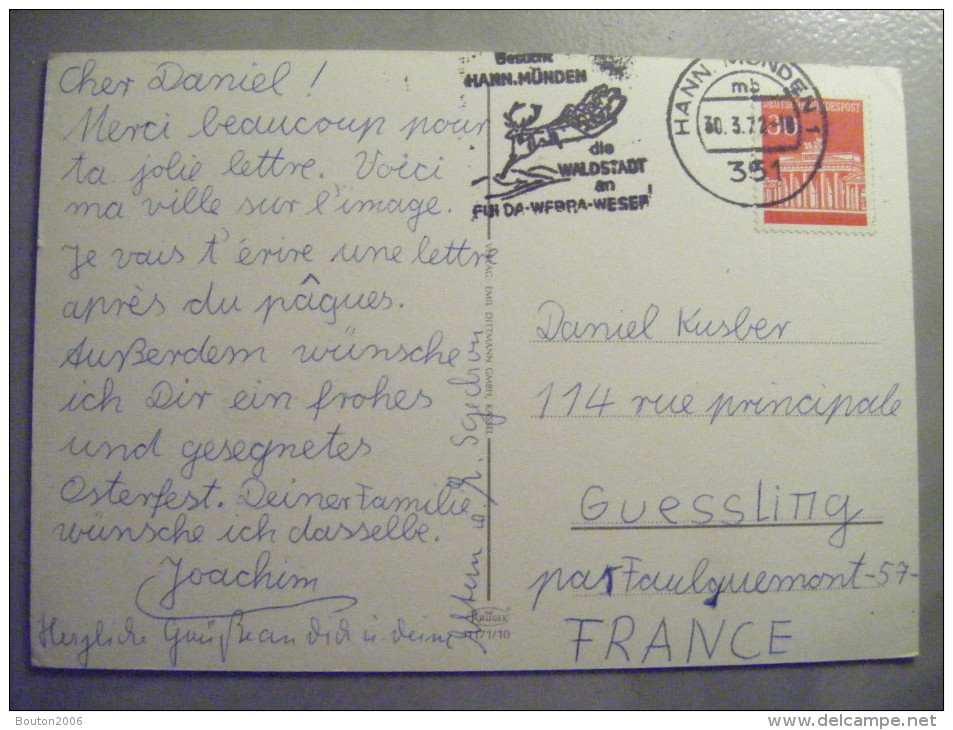 Cher Daniel!
Merci beaucoup pour
ta jolie lettre. Voici
ma ville sur l'image.
Je vais t'érire une lettre
après du pâques.
Außerdem wünsche
ich Dir ein frohes
und gesegnetes
Osterfest. Deiner Familie
wünsche ich dasselbe.
Joachim
Herzliche Grüße an dich u deine
Eltern
Besucht
HANN. MÜNDEN
die
WALDSTADT
an
FULDA-WERRA-WESER
HANN MÜNDEN 1
mb
30.3.72-18
351
DEUTSCHE BUNDESPOST
VERLAG EMIL DITTMANN GMBH, KASSEL
KRÜGER
1171/10
Daniel Kusber
114 rue principale
Guessling
par Faulquemont-57-
FRANCE
Bouton2006
www.delcampe.net